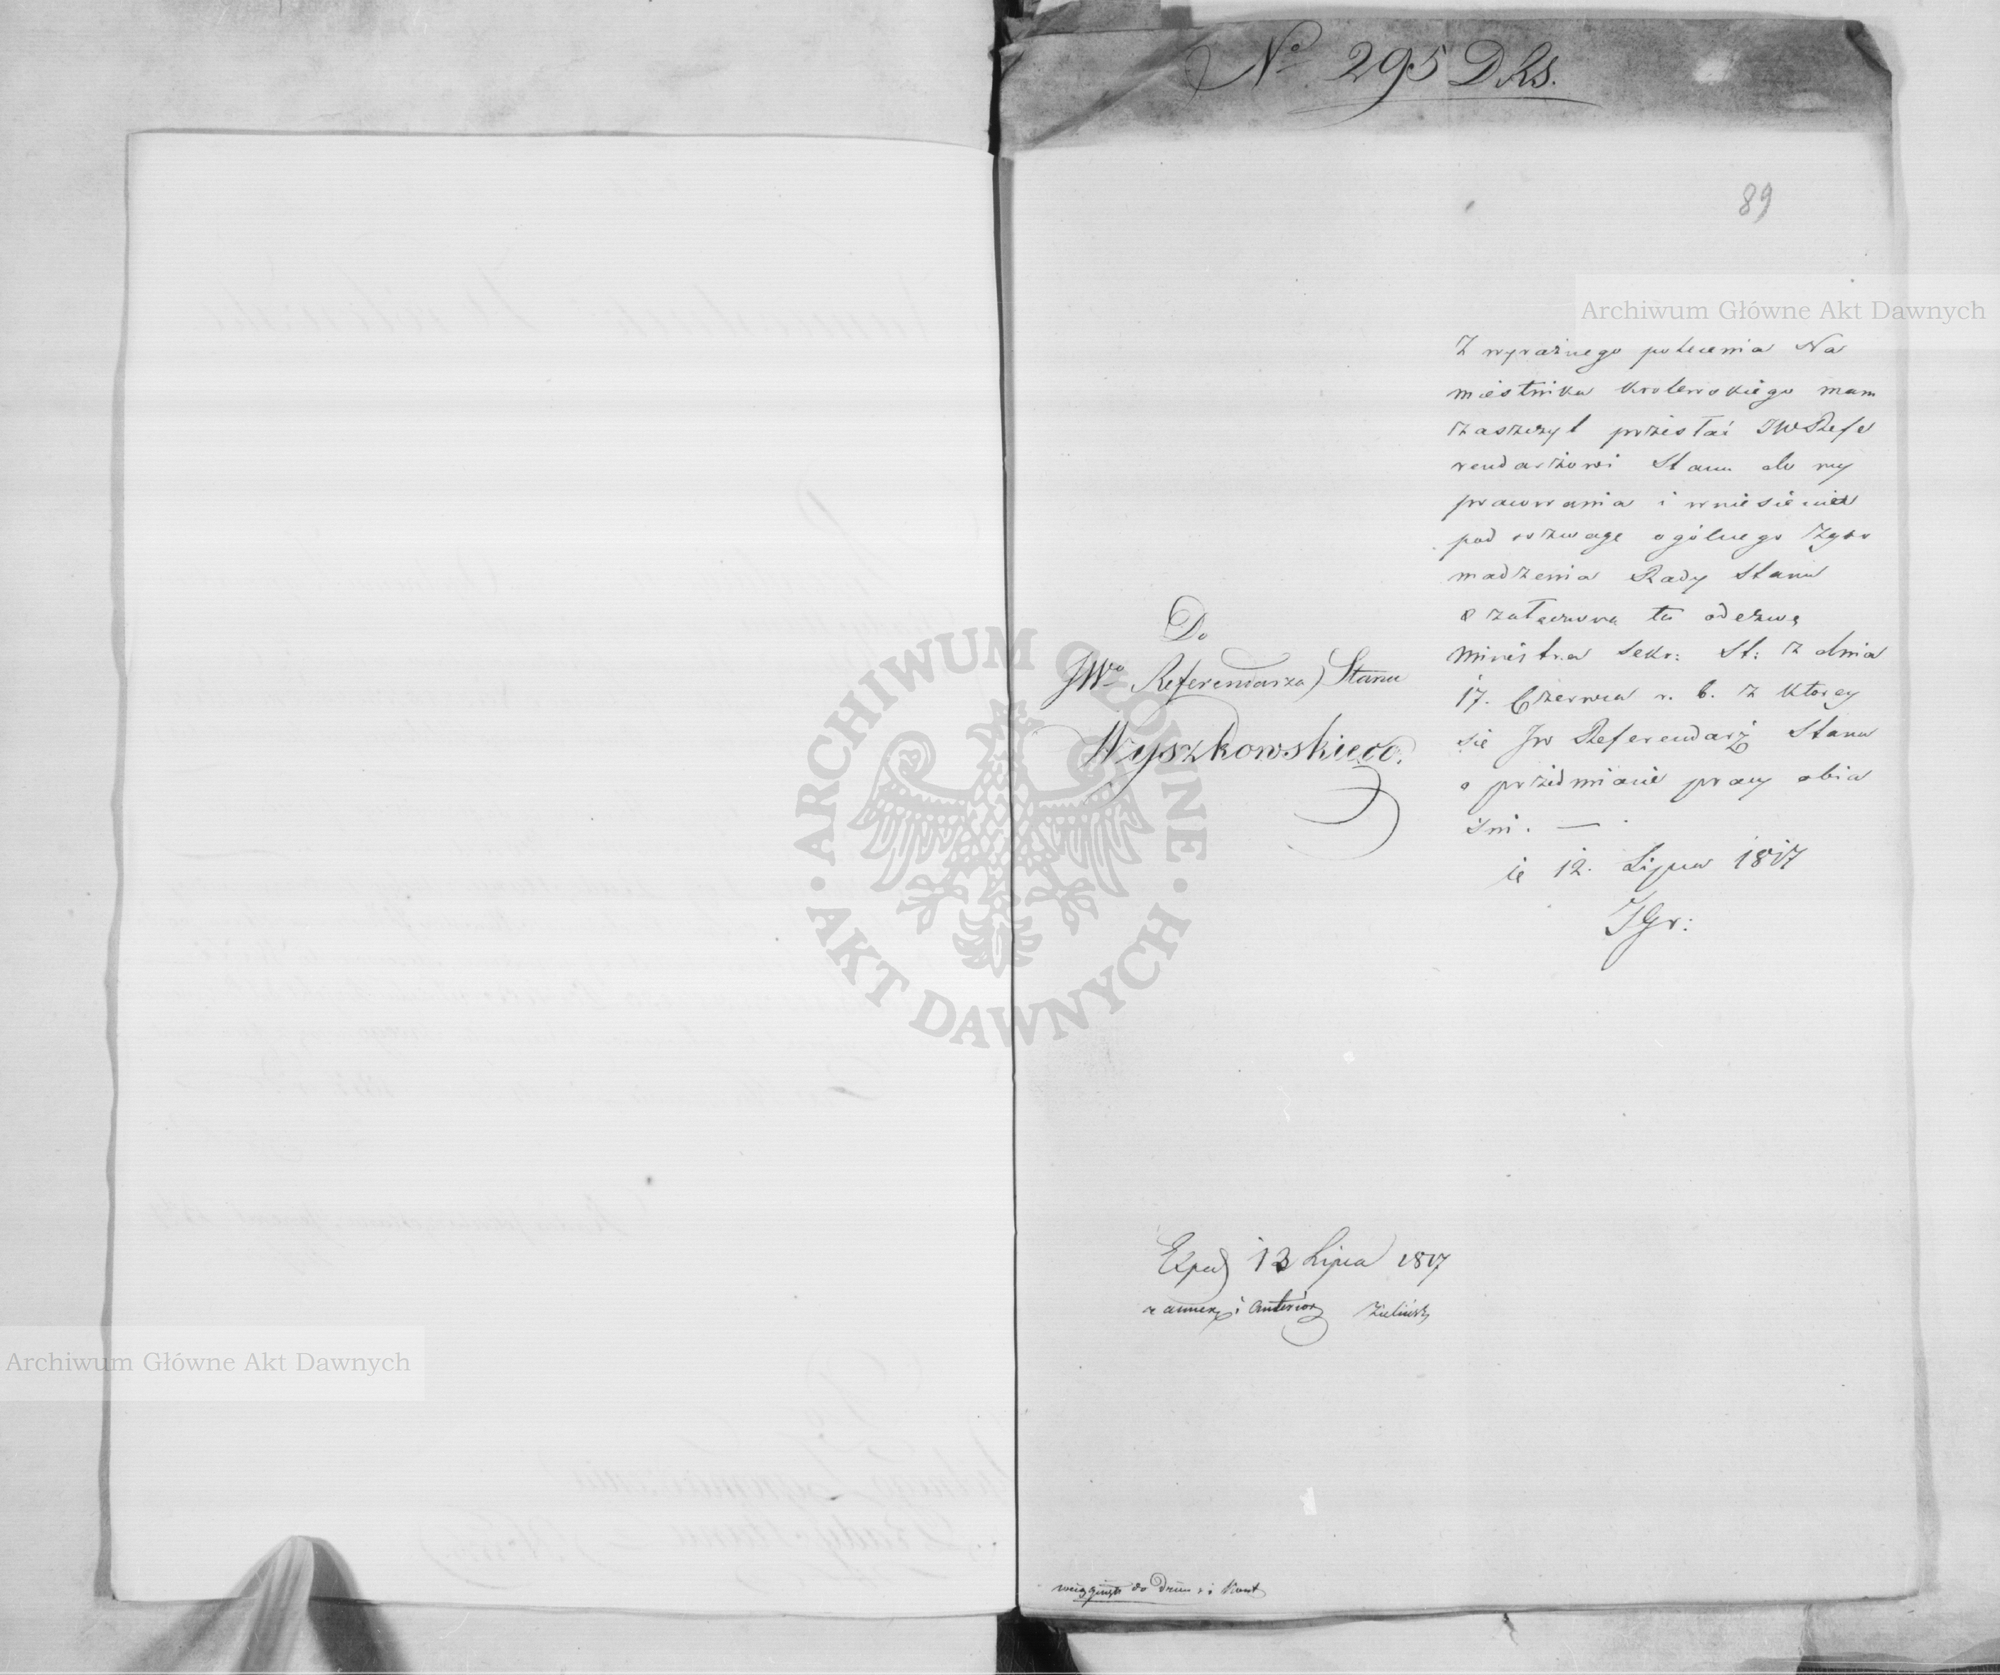 No 295 DRS.
89
Archiwum Główne Akt Dawnych
Z wyraźnego polecenia Na
miestnika Krolewskiego mam
zaszczyt przesłać JWRefe
rendarzowi Stanu do wy
pracowania i wniesienia
pod rozwagę ogólnego Zgro
madzenia Rady Stanu
załączoną tu odezwę
Ministra Sekr: St: z dnia
17. Czerwca r. b. z ktorey
się JW Referendarz Stanu
o przedmiocie pracy obia
śni. —
12. Lipca 1817
JGr:
Do
JWo Referendarza Stanu
Wyszkowskiego.
ARCHIWUM GŁÓWNE
AKT DAWNYCH
Exped 13 Lipca 1817
z annex i anterior Zieliński
Archiwum Główne Akt Dawnych
wciągnięto do Dzien: i Kont